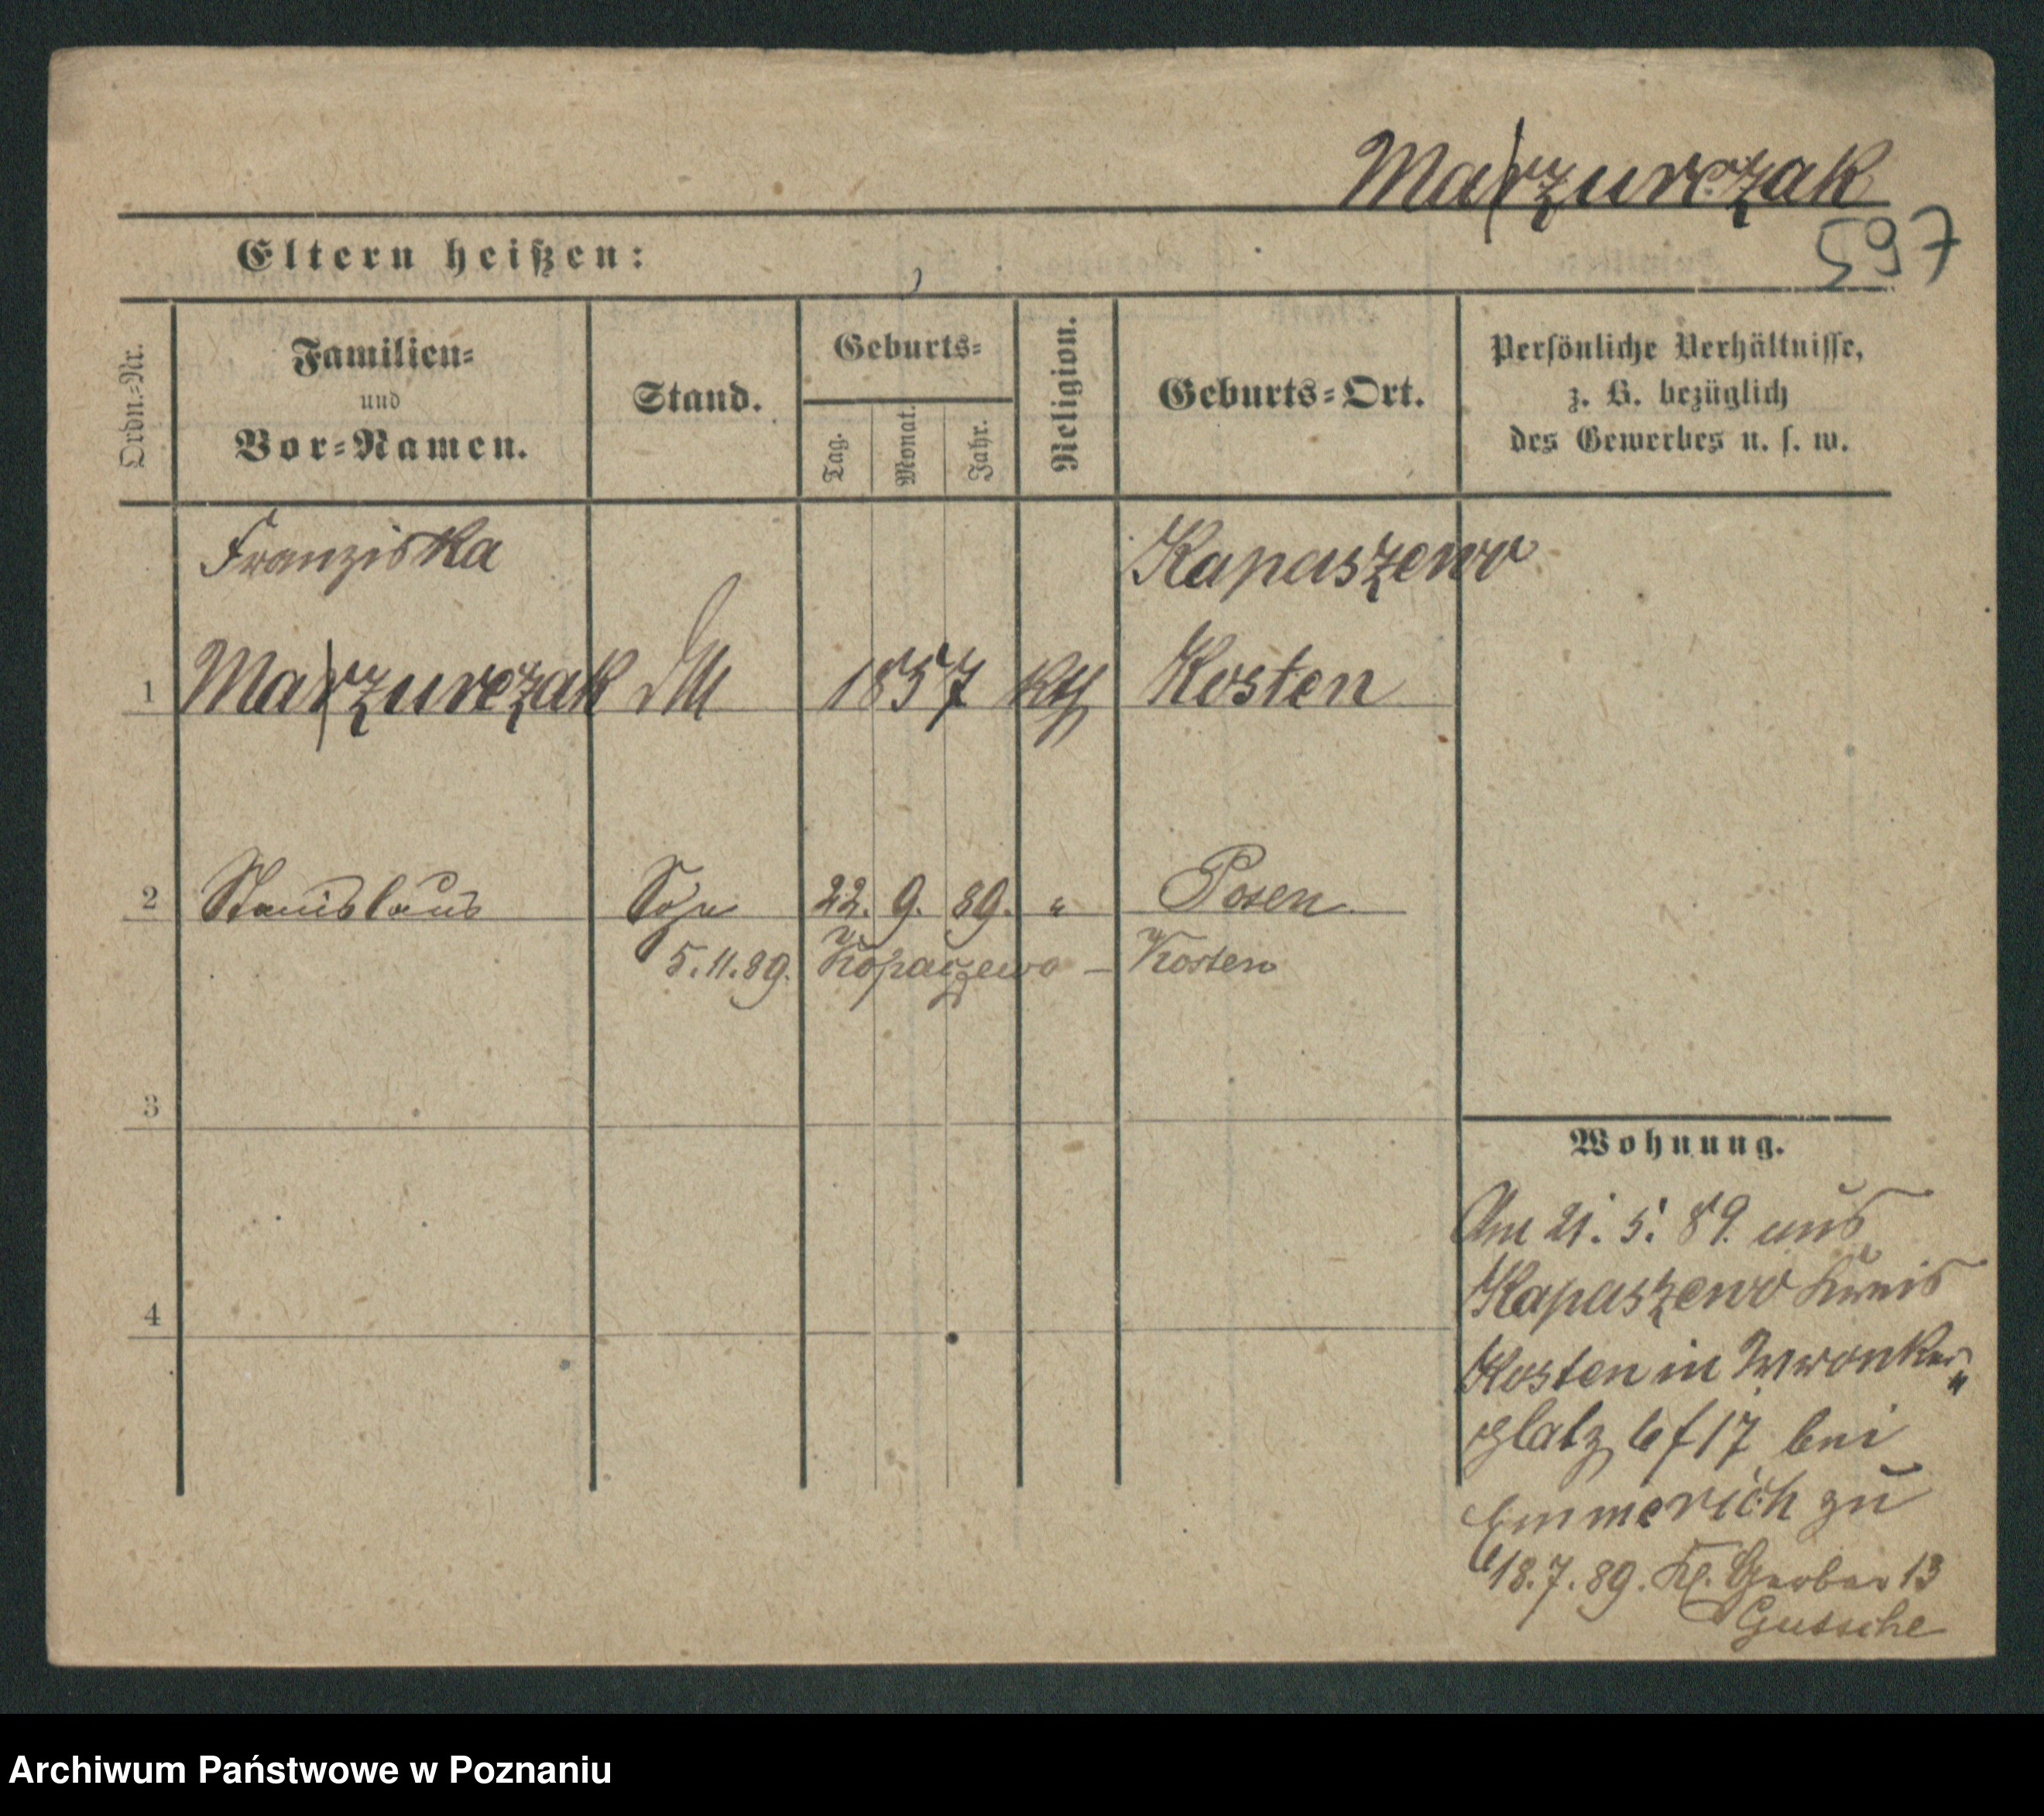 Mazurczak
597
Eltern heißen:
Ordn.=Nr.
Familien=
und
Vor=Namen.
Stand.
Geburts=
Tag.
Monat.
Jahr.
Religion.
Geburts=Ort.
Persönliche Verhältnisse,
z. B. bezüglich
des Gewerbes u. s. w.
Franziska Kapaszewo
1 Mazurczak 1857 kth Kosten
2 Stanislaus Sohn 22. 9. 89. " Posen
5.11.89. Kopaszewo – Kosten
3
4
Wohnung.
Am 21. 5. 89. aus
Kapaszewo Kreis
Kosten in Wronker
platz 6/17 bei
Emmerich zu
18.7.89. Kl. Gerber 13
Gussche
Archiwum Państwowe w Poznaniu